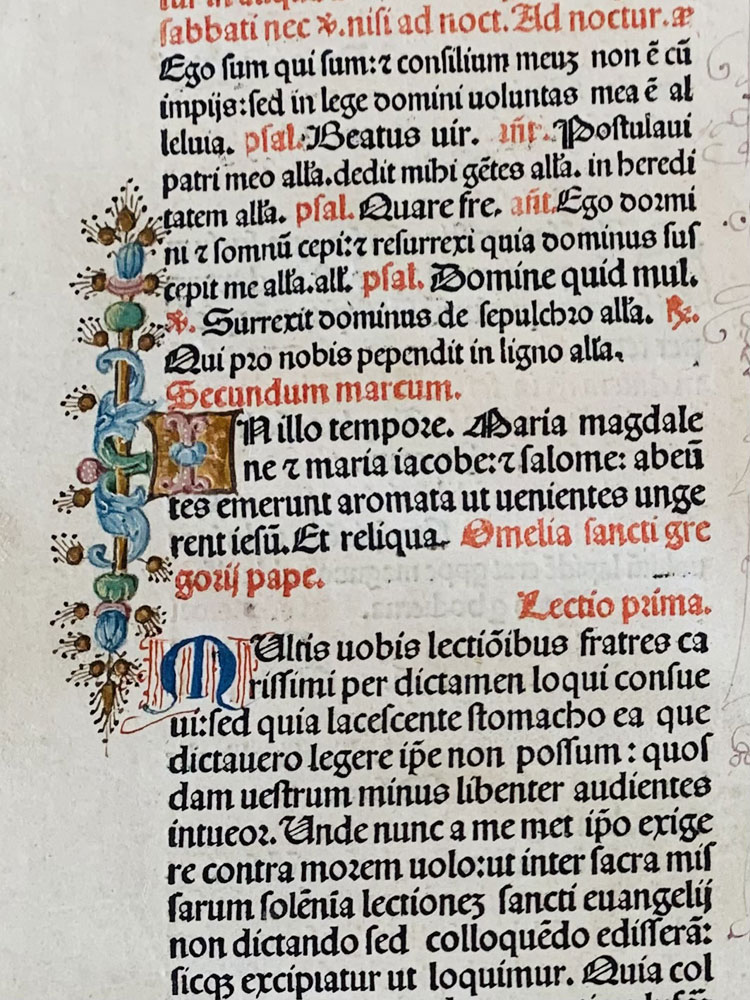 sabbati nec ℣. nisi ad noct. Ad noctur. æ
Ego sum qui sum: ⁊ consilium meuꝫ non ē cū
impijs: sed in lege domini uoluntas mea ē al
leluia. psal. Beatus uir. añt. Postulaui
patri meo allʼa. dedit mihi gētes allʼa. in heredi
tatem allʼa. psal. Quare fre. añt. Ego dormi
ni ⁊ somnū cepi: ⁊ resurrexi quia dominus sus
cepit me allʼa. all. psal. Domine quid mul.
℣. Surrexit dominus de sepulchro allʼa. ℟.
Qui pro nobis pependit in ligno allʼa.
Secundum marcum.
IN illo tempore. Maria magdale
ne ⁊ maria iacobe: ⁊ salome: abeū
tes emerunt aromata ut uenientes unge
rent iesū. Et reliqua. Omelia sancti gre
gorij pape.
Lectio prima.
MUltis uobis lectiōibus fratres ca
rissimi per dictamen loqui consue
ui: sed quia lacescente stomacho ea que
dictauero legere ip̄e non possum: quos
dam uestrum minus libenter audientes
intueor. Unde nunc a me met ip̄o exige
re contra morem uolo: ut inter sacra mis
sarum solēnia lectioneꝫ sancti euangelij
non dictando sed colloquēdo edisserā:
sicqꝫ excipiatur ut loquimur. Quia col